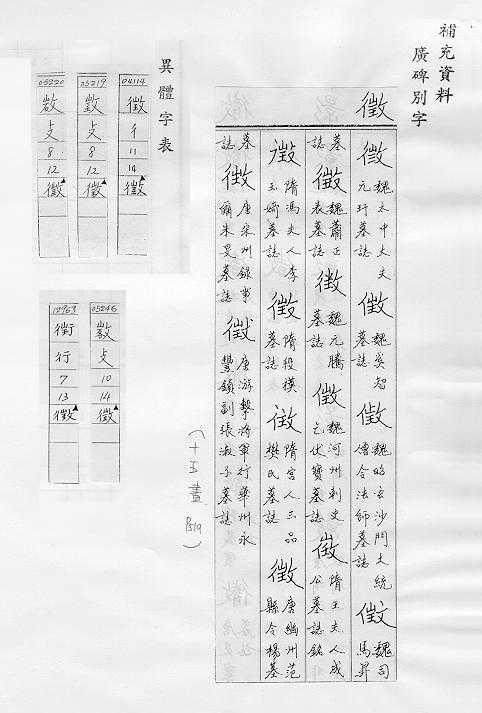 補充資料
廣碑別字
徵
魏太中大夫元玕墓誌
魏奚智墓誌
魏昭玄沙門大統僧令法師墓誌
魏司馬昇
墓誌
魏蕭正表墓誌
魏元騰墓誌
魏河州刺史乞伏寶墓誌
隋王夫人成公墓誌銘
隋馮夫人李玉婍墓誌
隋段模墓誌
隋宮人三品樊氏墓誌
唐幽州范縣令楊基
墓誌
唐宋州錄事爾朱旻墓誌
唐游擊將軍行華州永豐鎮副張淑子墓誌
(十五畫 P519)
異體字表
04114
徵
彳
11
14
徵
05219
攴
8
12
徵
05220
攴
8
12
徵
05246
攴
10
14
徵
12953
行
7
13
徵